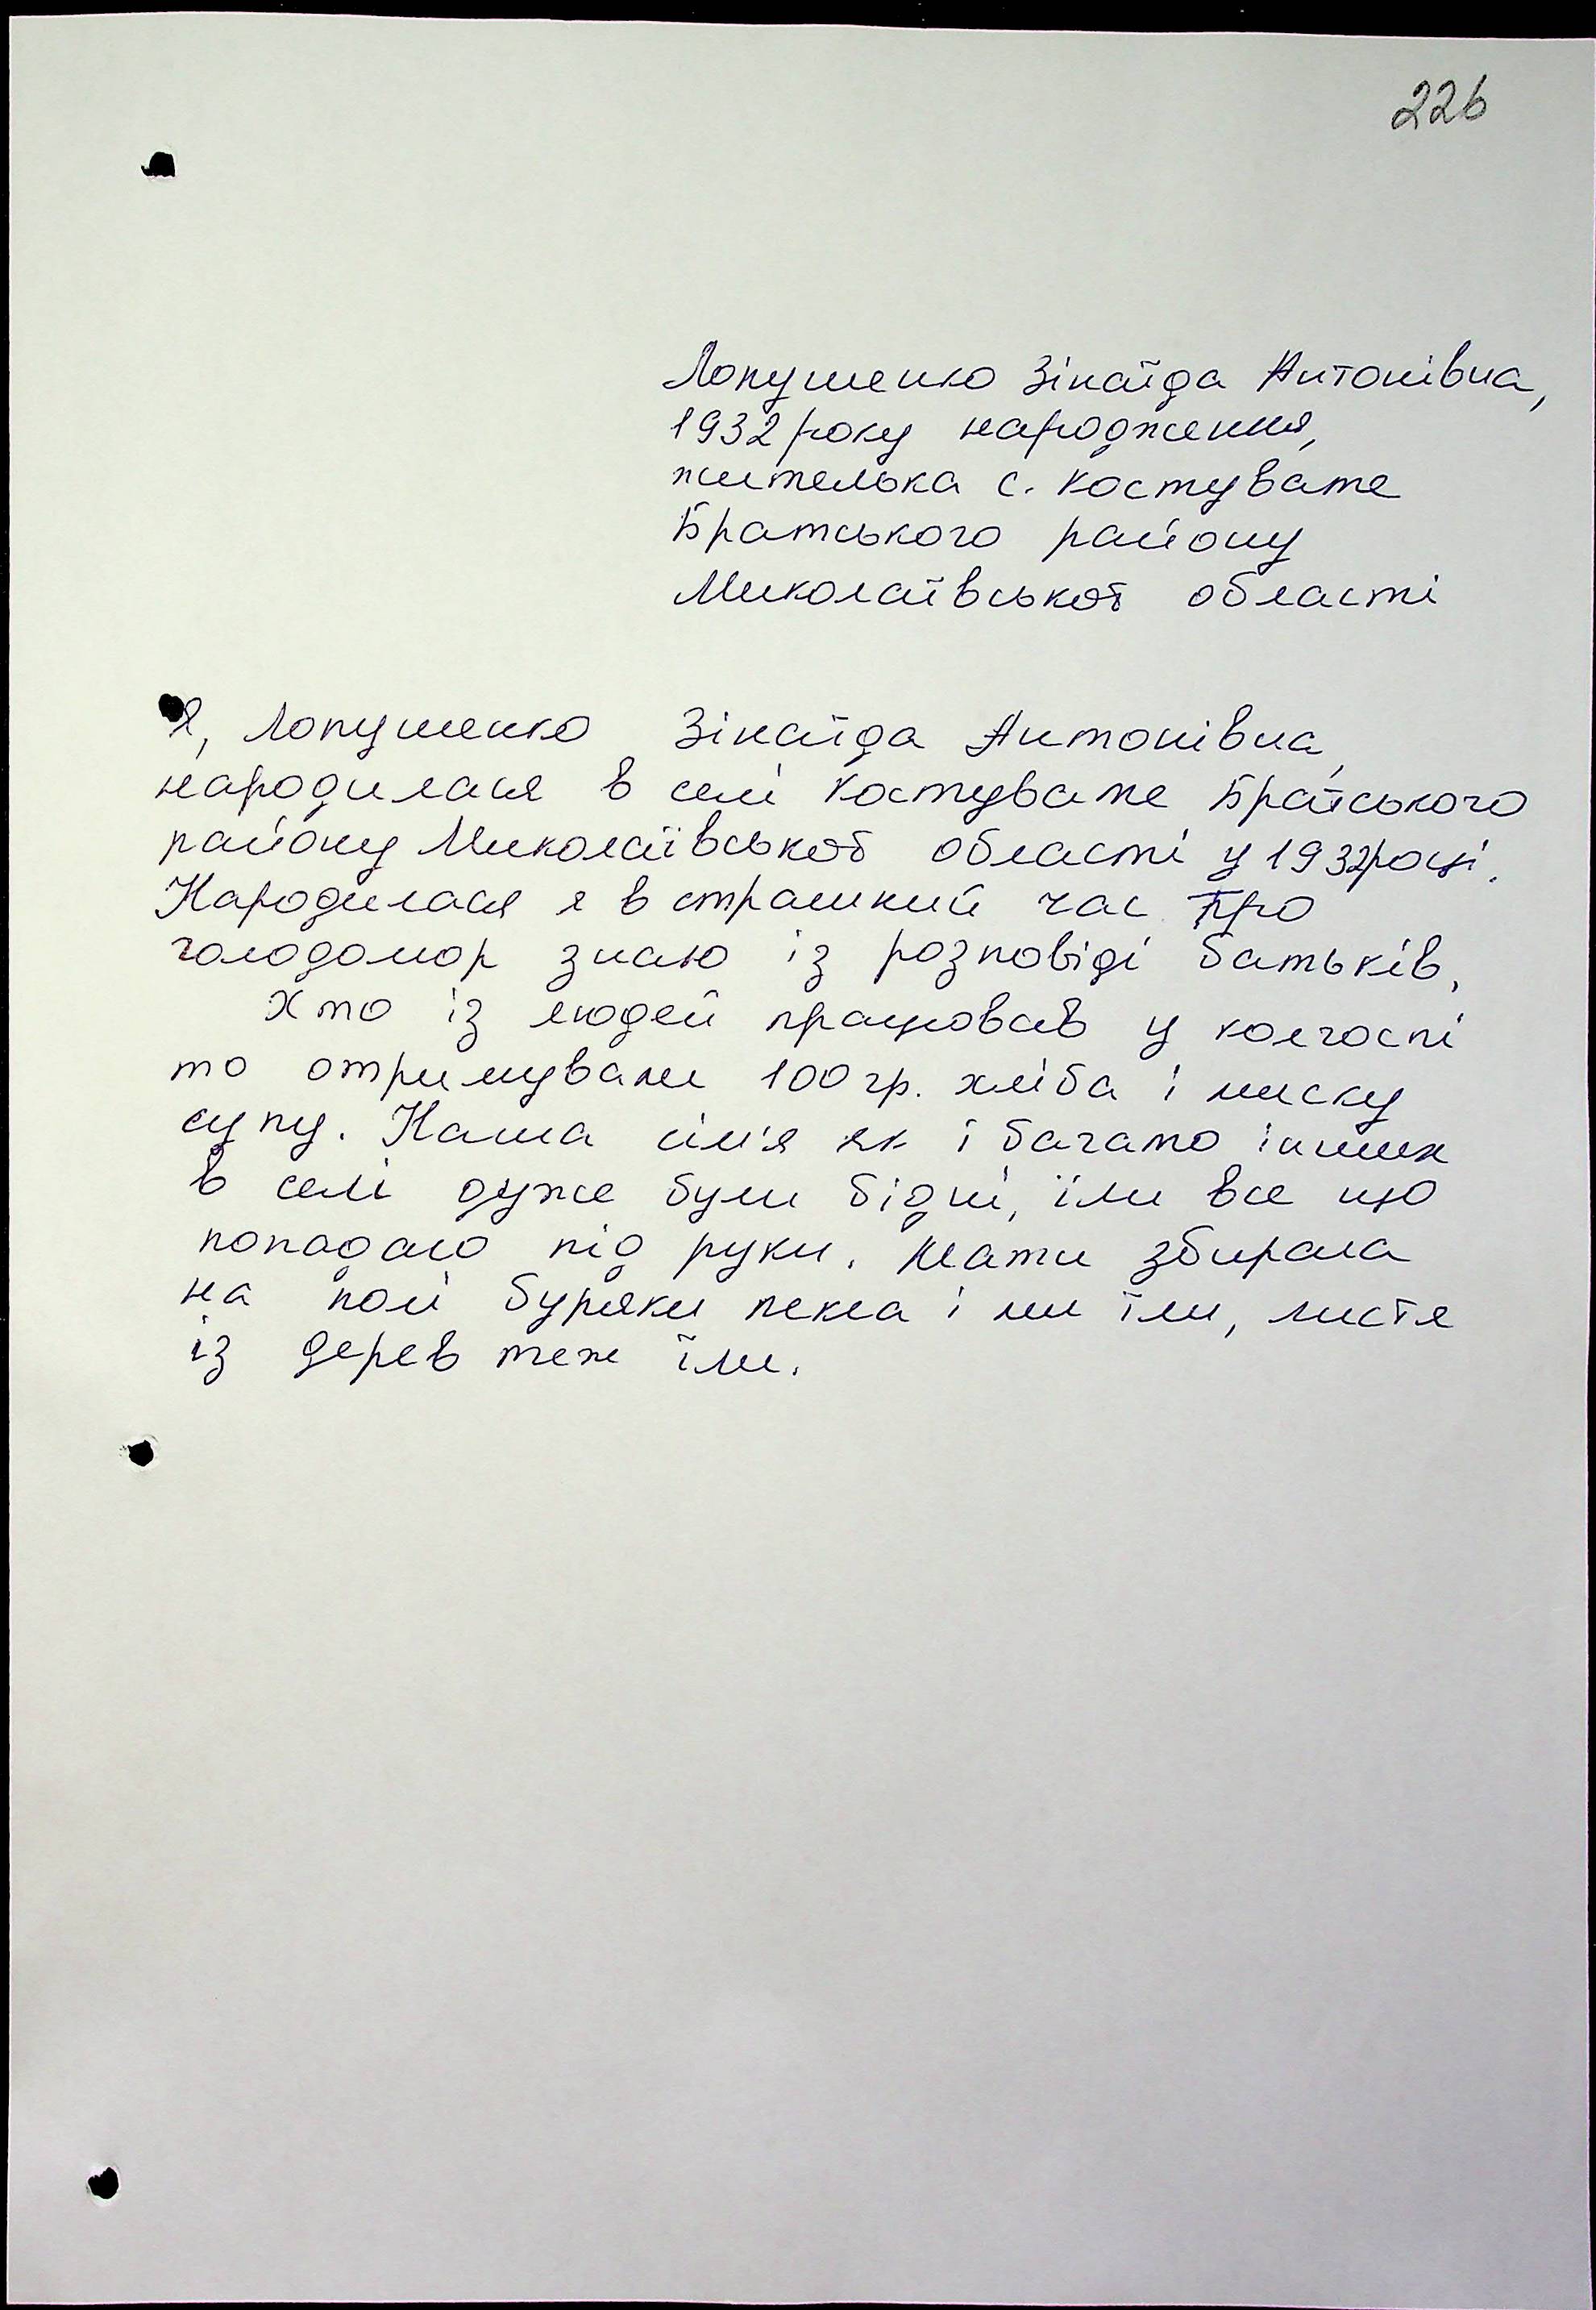 226
Лопушенко Зінаїда Антонівна,
1932 року народження,
жителька с. Костувате
Братського району
Миколаївської області
Я, Лопушенко Зінаїда Антонівна,
народилася в селі Костувате Братського
району Миколаївської області у 1932 році.
Народилася я в страшний час. Про
голодомор знаю із розповіді батьків.
Хто із людей працював у колгоспі
то отримували 100 гр. хліба і миску
супу. Наша сім'я як і багато інших
в селі дуже були бідні, їли все що
попадало під руки. Мати збирала
на полі буряки пекла і ми їли, листя
із дерев теж їли.